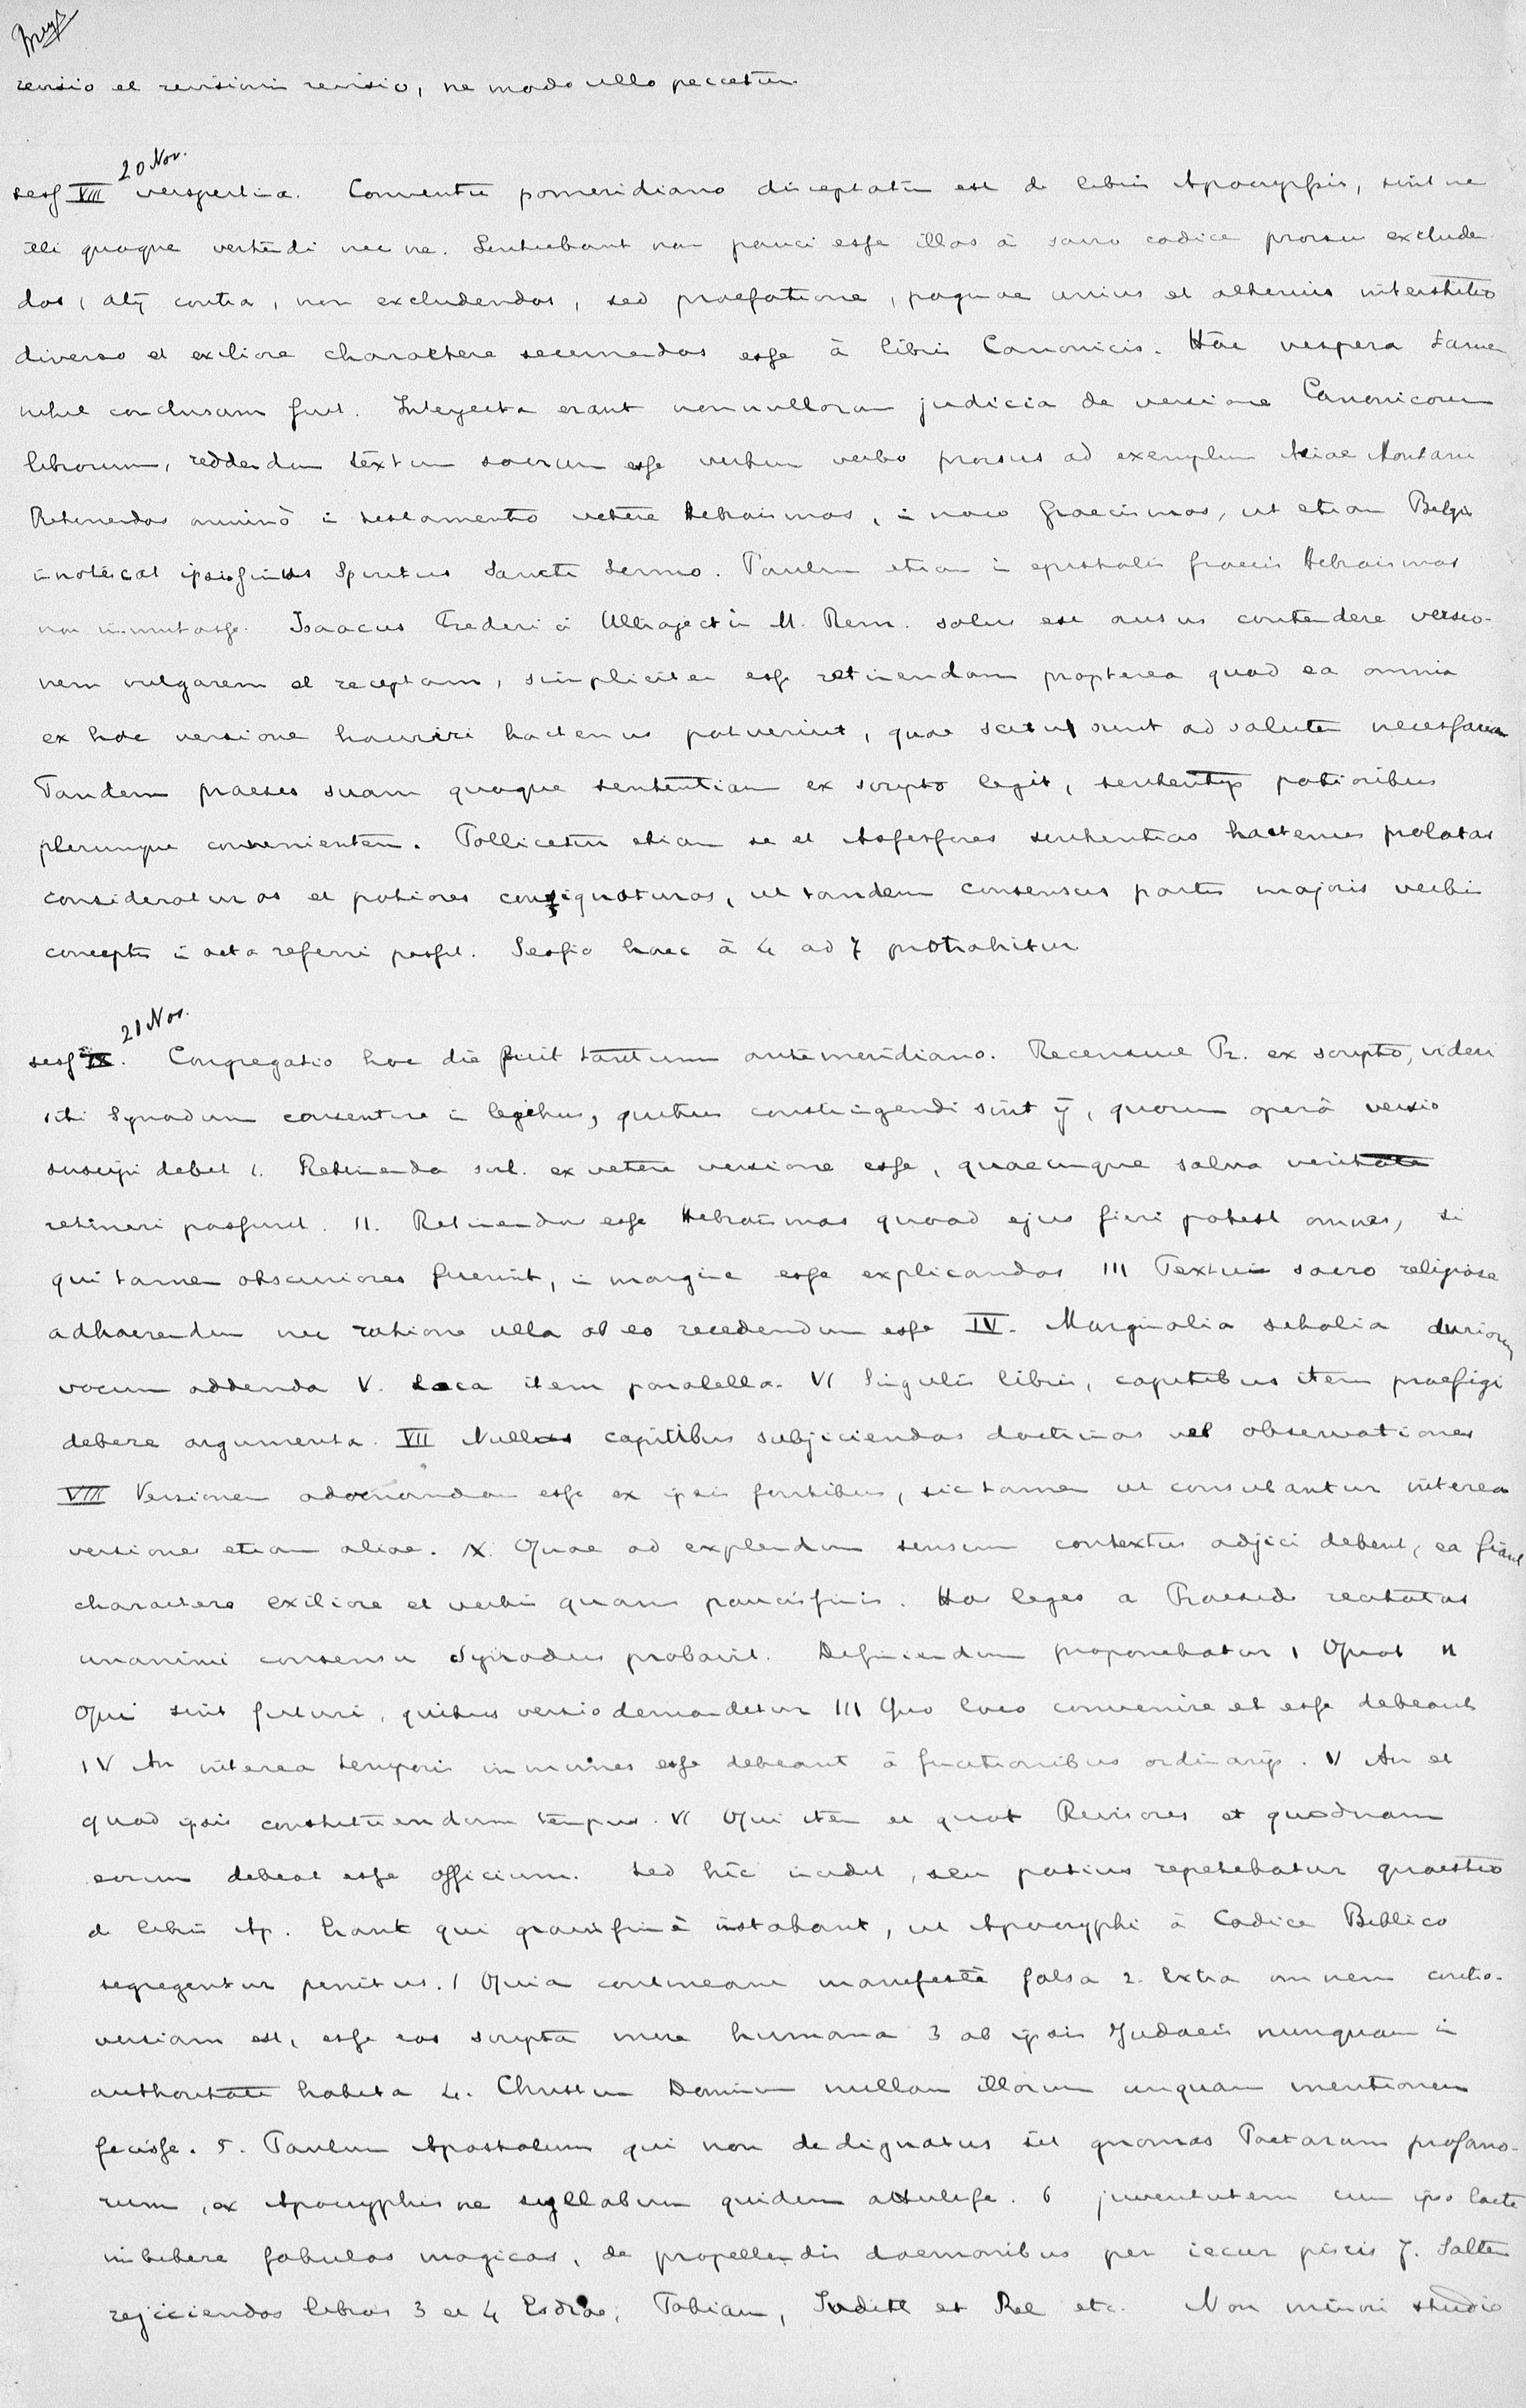 revisio et revisionis revisio, ne modo ullo peccetur.
20 Nov.
sess VIII vespertina. Conventu pomeridiano disceptatū est de libris Apocryphis, sint ne
illi quoque vertēdi nec ne. Sentiebant non pauci esse illos à sacro codice prorsus excluden
dos, alij contra, non excludendos, sed praefatione, paginae unius et alterius interstitio
diverso et exiliore charactere secernendos esse à libris Canonicis. Hâc vespera tamen
nihil conclusum fuit. Interjecta erant nonnullorum judicia de versione Canonicorum
librorum, reddendum textum sacrum esse verbum verbo prorsus ad exemplum Ariae Montani
Retinendos omninò ī testamento vetere Hebraismos, ī novo Graecismos, ut etiam Belgis
īnotescat ipsissimus Spiritus Sancti sermo. Paulum etiam ī epistolis graecis Hebraismos
non immutasse. Isaacus Frederici Ultrajectīs M. Rem. solus est ausus contēdere versio-
nem vulgarem et receptam, simpliciter esse retinendam propterea quod ea omnia
ex hac versione hauriri hactenus potuerint, quae scitu sunt ad salutē necessaria
Tandem praeses suam quoque sentētiam ex scripto legit, sententijs potioribus
plerunque convenientem. Pollicetur etiam se et Assessores sententias hactenus prolatas
consideraturos et potiores consignaturos, ut tandem consensus partis majoris verbis
conceptis ī acta referri possit. Sessio haec à 4 ad 7 protrahitur
21 Nov.
sess IX. Congregatio hoc die fuit tantum antemeridiano. Recensuit Pr. ex scripto, videri
sibi Synodum consentire ī legibus, quibus constringendi sint ij, quorum operâ versio
suscipi debet 1. Retinenda scil. ex vetere versione esse, quaecunque salva veritate
retineri possunt. II. Retinendos esse Hebraismos quoad ejus fieri potest omnes, si
qui tamen obscuriores fuerint, ī margine esse explicandos III Textui sacro religiose
adhaerendum nec ratione ulla ab eo recedendum esse IV. Marginalia scholia duriorum
vocum addenda V. Loca item paralella. VI Singulis libris, capitibus item praefigi
debere argumenta. VII Nullas capitibus subjiciendas doctrinas vel observationes
VIII Versionem adornandam esse ex ipsis fontibus, sic tamen ut consulantur interea
versiones etiam aliae. IX. Quae ad explendum sensum contextus adjici debent, ea fiant
charactere exiliore et verbis quam paucissimis. Has leges a Praeside recitatas
unanimi consensu Synodus probavit. Definiendum proponebatur I Quot II
Qui sint futuri, quibus versio demandetur III Quo loco convenire et esse debeant
IV An interea temporis immunes esse debeant à functionibus ordinarijs. V An et
quod ipsis constituendum tempus. VI Qui item et quot Revisores et quodnam
eorum debeat esse officium. Sed hîc incidit, seu potius repetebatur quaestio
de libris Ap. Erant qui gravissimè instabant, ut Apocryphi à Codice Biblico
segregentur penitus. 1 Quia contineant manifestè falsa 2. Extra omnem contro-
versiam est, esse eos scripta mere humana 3 ab ipsis Judaeis nunquam ī
authoritate habita 4. Christum Dominum nullam illorum unquam mentionem
fecisse. 5. Paulum Apostolum qui non dedignatus sit gnomas Poetarum profano-
rum, ex Apocryphis ne syllabam quidem attulisse. 6 juventutem cum ipso lacte
imbibere fabulas magicas, de propellendis daemonibus per iecur piscis 7. Saltem
rejiciendos libros 3 et 4 Esdrae, Tobiam, Judith et Bel etc. Non minori studio